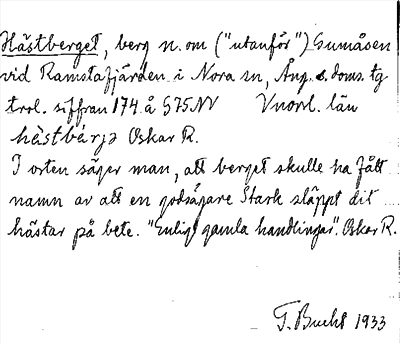 Hästberget, berg n. om ("utanför") Gumåsen
vid Ramstafjärden i Nora sn, Ång. s. doms. tg
trol. siffran 174 å G75NV Vnorrl. län
hästbärjə Oskar R.
I orten säger man, att berget skulle ha fått
namn av att en godsägare Stark släppt dit
hästar på bete. "Enligt gamla handlingar". Oskar R.
T. Bucht 1933